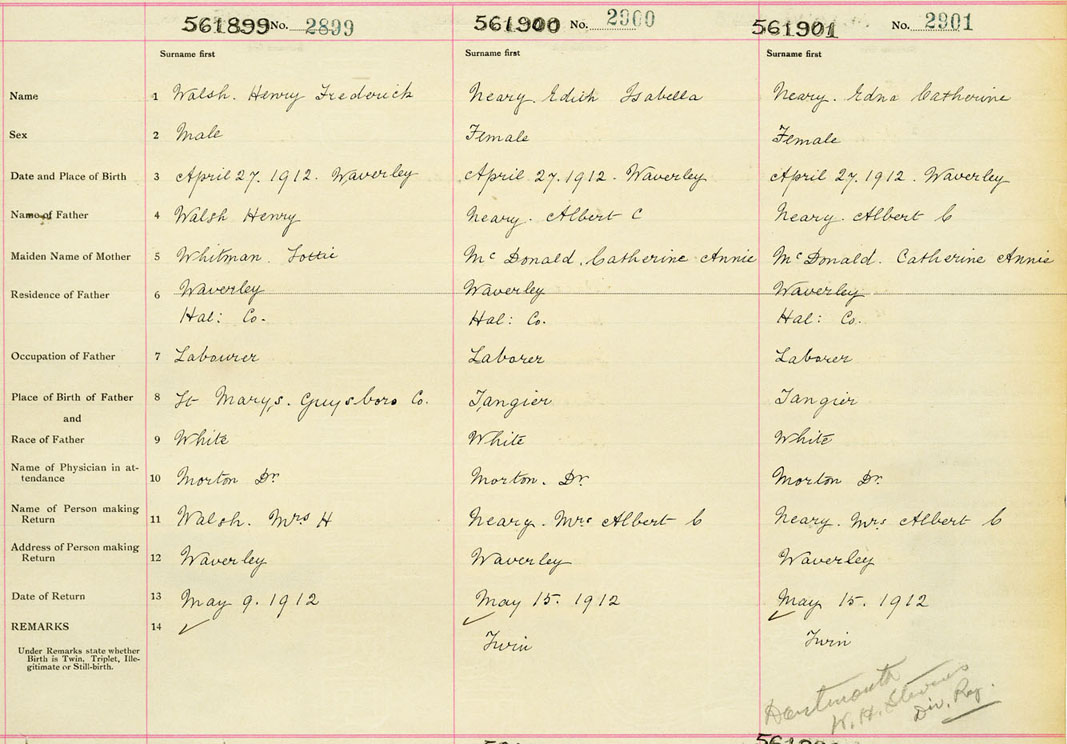 561899 No. 2899 561900 No. 2900 561901 No. 2901
Surname first Surname first Surname first
Name 1 Walsh. Henry Frederick Neary. Edith Isabella Neary. Edna Catherine
Sex 2 Male Female Female
Date and Place of Birth 3 April 27. 1912. Waverley April 27. 1912. Waverley April 27. 1912. Waverley
Name of Father 4 Walsh Henry Neary. Albert C Neary. Albert C
Maiden Name of Mother 5 Whitman. Lottie Mc Donald. Catherine Annie Mc Donald. Catherine Annie
Residence of Father 6 Waverley Waverley Waverley
Hal: Co. Hal: Co. Hal: Co.
Occupation of Father 7 Labourer Laborer Laborer
Place of Birth of Father 8 St Marys. Guysboro Co. Tangier Tangier
and
Race of Father 9 White White White
Name of Physician in at-
tendance 10 Morton Dr. Morton. Dr Morton Dr.
Name of Person making
Return 11 Walsh. Mrs H Neary. Mrs Albert C Neary. Mrs Albert C
Address of Person making
Return 12 Waverley Waverley Waverley
Date of Return 13 May 9. 1912 May 15. 1912 May 15. 1912
REMARKS 14 ✓ ✓ ✓
Twin Twin
Under Remarks state whether
Birth is Twin, Triplet, Ille-
gitimate or Still-birth.
Dartmouth
W. H. Stevens
Div. Reg.